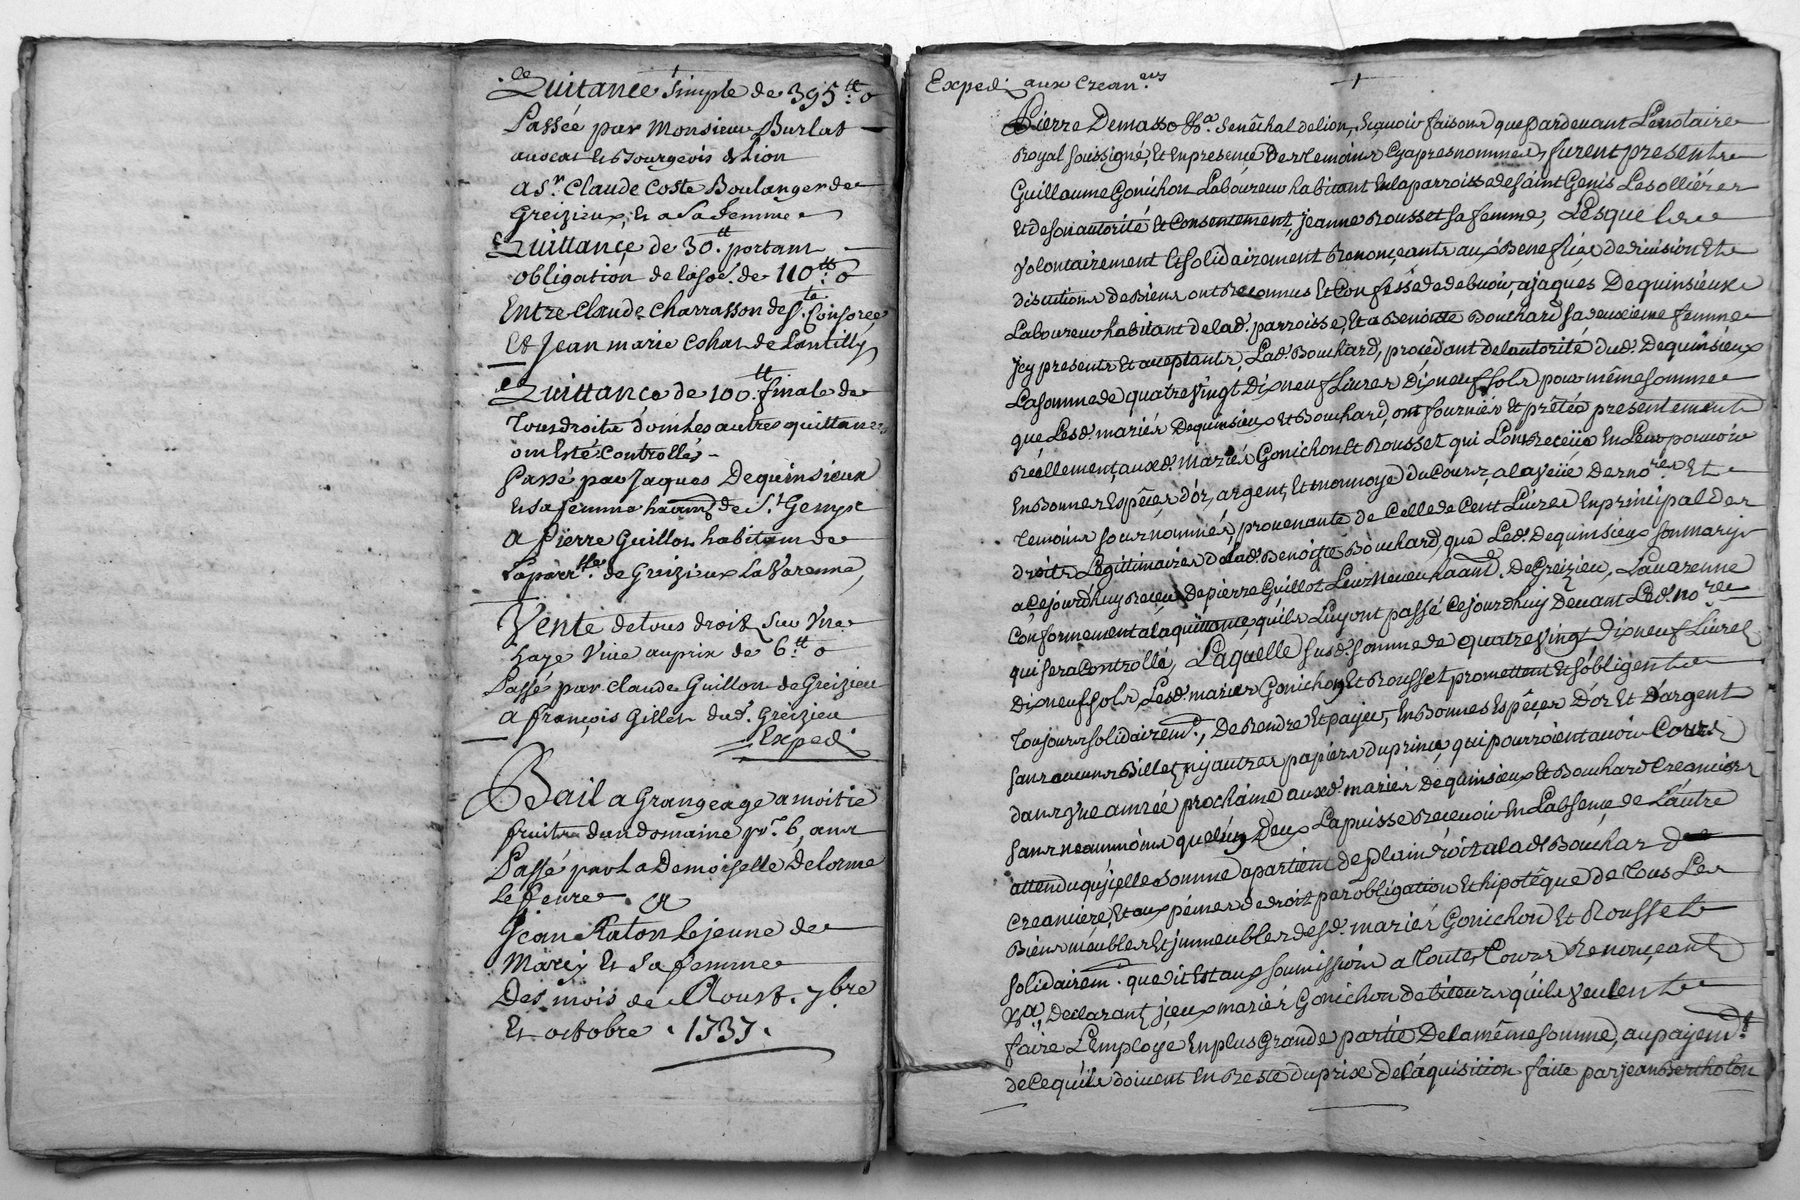 Quitance simple de 395.tt o
Passée par Monsieur Burlat
avocat et Bourgeois de Lion
a Sr. Claude Coste Boulanger de
Greizieux, et a sa femme
Quittançe de 30.tt portant
obligation de la so.e de 110.tt o
Entre Claude Charrasson de Ste. Consorce
Et Jean marie Cohas de Lantilly
Quittançe de 100.tt finale de
tous droits dont les autres quittances
ont esté Controllés
Passé par Jaques Dequinsieux
et sa femme de St. Genys
a Pierre Guillot habitant de
la parr.sse de Greizieux La Varenne,
Vente de tous droits sur Une
haye Vive au prix de 6.tt o
Passé par Claude Guillon de Greizieu
a françois Gillet dud. Greizieu
Exped.
Bail a Grangeage a moitie
fruits dun domaine pr. 6, ans
Passé par La Demoiselle Delorme
Lefevre. a
Jean Raton Lejeune de
Marcy Et Sa femme
Des mois de Aoust. 7bre
Et octobre . 1737.
Exped. aux Crean.ers
Pierre Demasso &a. Senêchal de lion, Sçavoir faisons que pardevant Le notaire
Royal soussigné, Et En presence Des temoins Cy apres nommés, furent presents
Guillaume Gonichon Laboureur habitant En la parroisse de saint Genis Les olliéres
Et de son autorité Et Consentement, jeanne Rousset sa femme, Lesquels
Volontairement Et solidairement Renonçeants aux Benefiçes de division Et
discutions de Biens ont Reconnus Et Confessé de devoir, a jaques Dequinsieux
Laboureur habitant de lad. parroisse, Et a Benoiste Bouchard sa deuxieme femme
jcy presents Et acceptants, Lad. Bouchard, procédant de lautorité dud. Dequinsieux
La somme de quatre vingt Dix neuf Livres Dix neuf sols pour même somme
que Lesd. mariés Dequinsieux Et Bouchard, ont fournie Et prêtée presentement
Réellement, auxd. mariés Gonichon Et Rousset qui Lont Reçeüe En Leur pouvoir
En Bonnes Espêçes d'or, argent, Et monnoye du Cours, a la veüe de no.res Et
temoins sousnommés, provenante de Celle de Cent Livres En principal des
droits Legitimaires de lad. Benoiste Bouchard, que Led. Dequinsieux son mary
a Ce jourdhuy Reçeu De pierre Guillot Leur Neveu haant. De Greizieu, La varenne
Conformement a la quittançe, qu'ils Luy ont passé Cejourdhuy Devant Led. no.re
qui sera Controllé, Laquelle susd. somme de quatre vingt Dix neuf Livres
Dix neuf sols, Lesd. mariés Gonichon Et Rousset promettent Et s'obligent
toujours solidairemt., De Rendre Et payer, En Bonnes Espêçes D'or Et D'argent
sans aucuns Billets ny autres papiers du prince, qui pourroient avoir Cours
dans Une année prochaine auxd. mariés Dequinsieux Et Bouchard Creanciers
sans neanmoins que lun Deux La puisse Recevoir En Labsençe de Lautre
attendu qu'jcelle Somme apartient de plain droit a lad. Bouchard
Creanciere, Et aux pênes de droit par obligation Et hipotêque de tous Les
Biens meubles Et jmmeubles desd. mariés Gonichon Et Rousset
Solidairem. que dit Est aux soumissions a toutes Cours Renonçeants
&a., Declarants jceux mariés Gonichon debiteurs qu'ils veulent
faire L'Employe En plus Grande partie De la même somme, au payemt.
de Ce qu'ils doivent En Reste du prix De l'aquisition faite par jean Bertholon